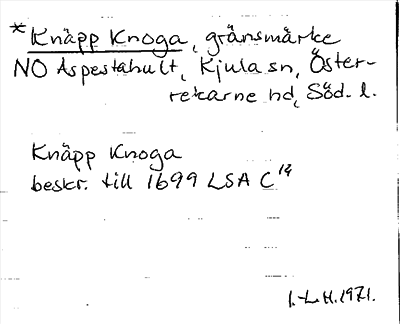 *Knäpp Knoga, gränsmärke
NO Aspestahult, Kjula sn, Öster-
rekarne hd, Söd. l.
Knäpp Knoga
beskr. till 1699 LSA C 14
I.-L. H. 1971.